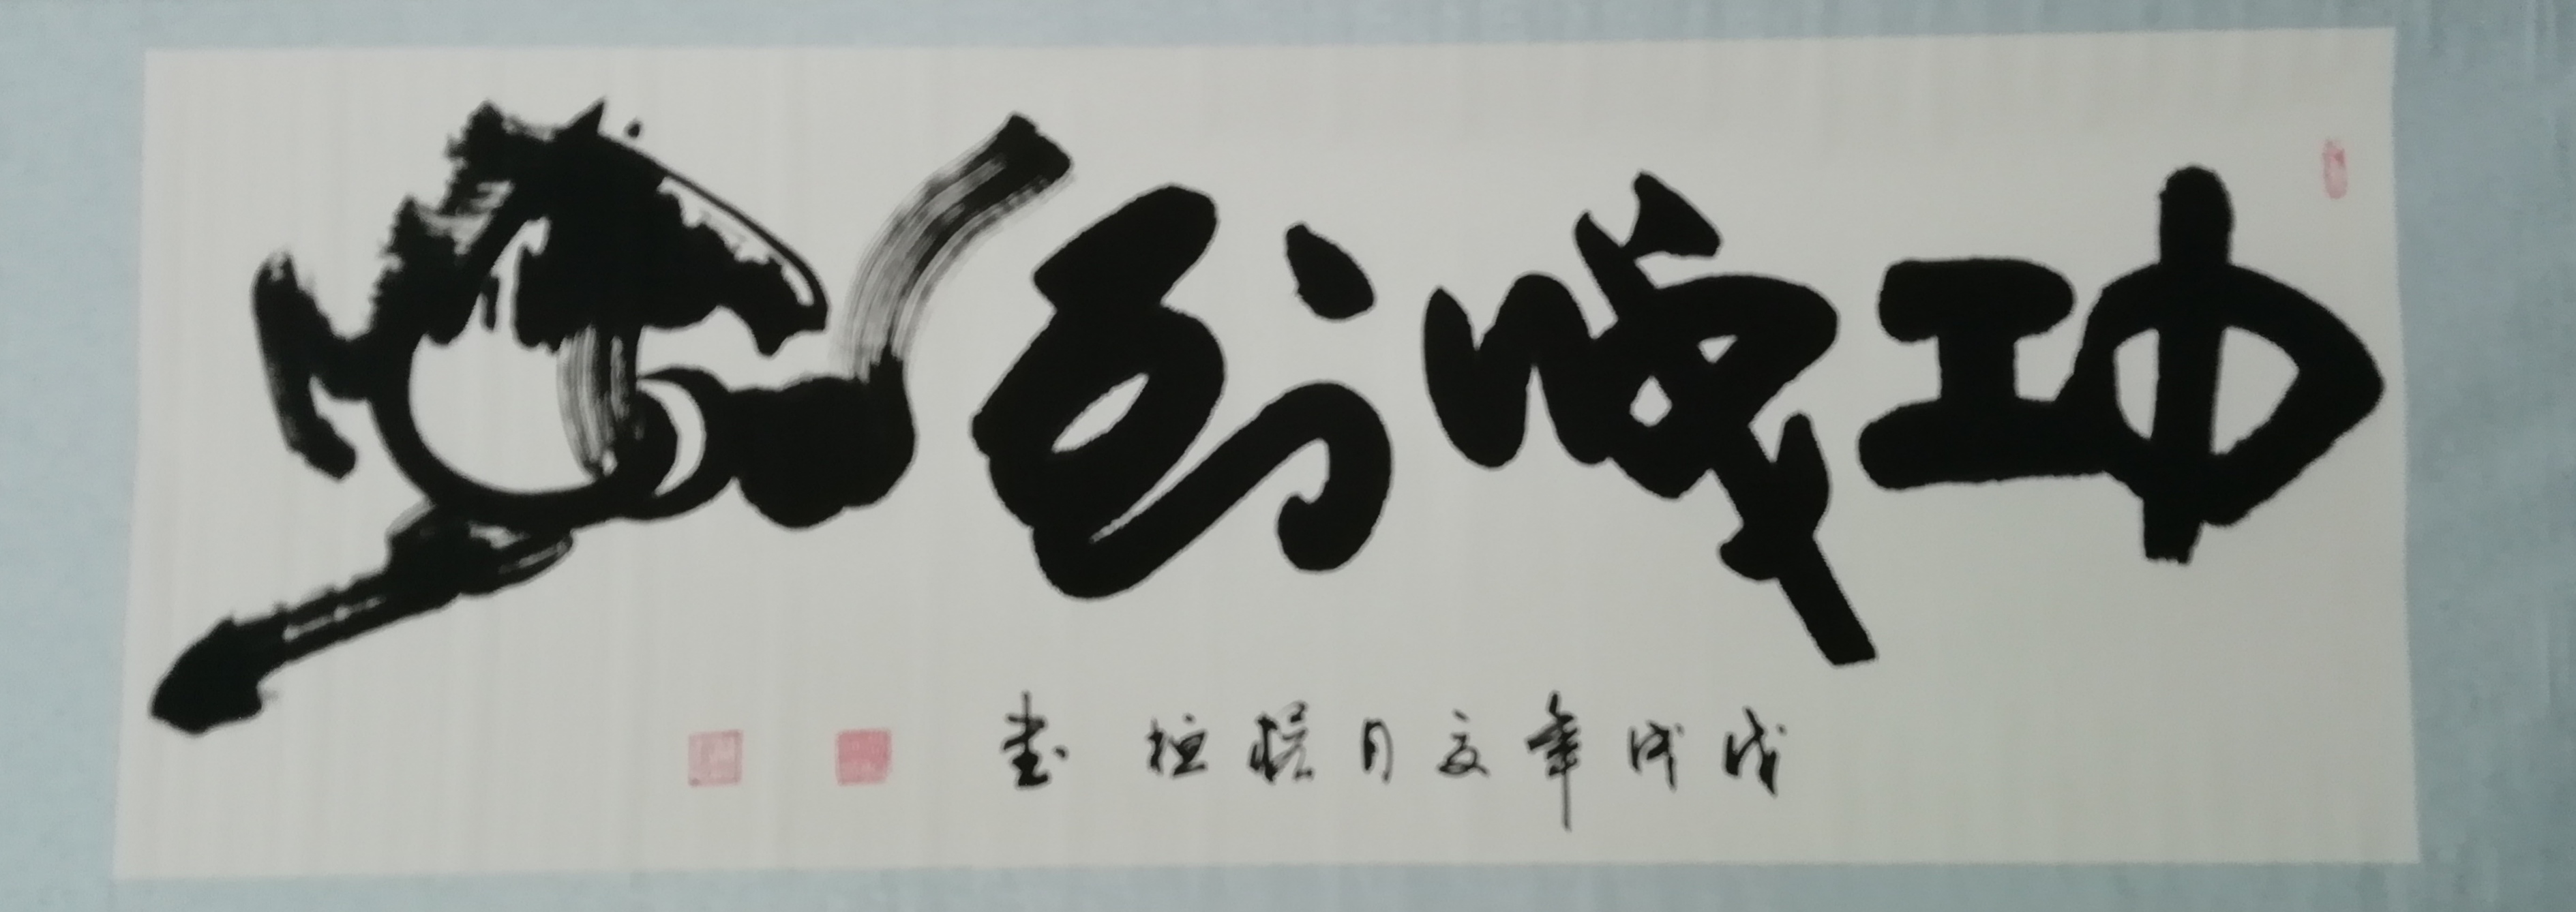 马到成功
戊戌年夏月 桓书